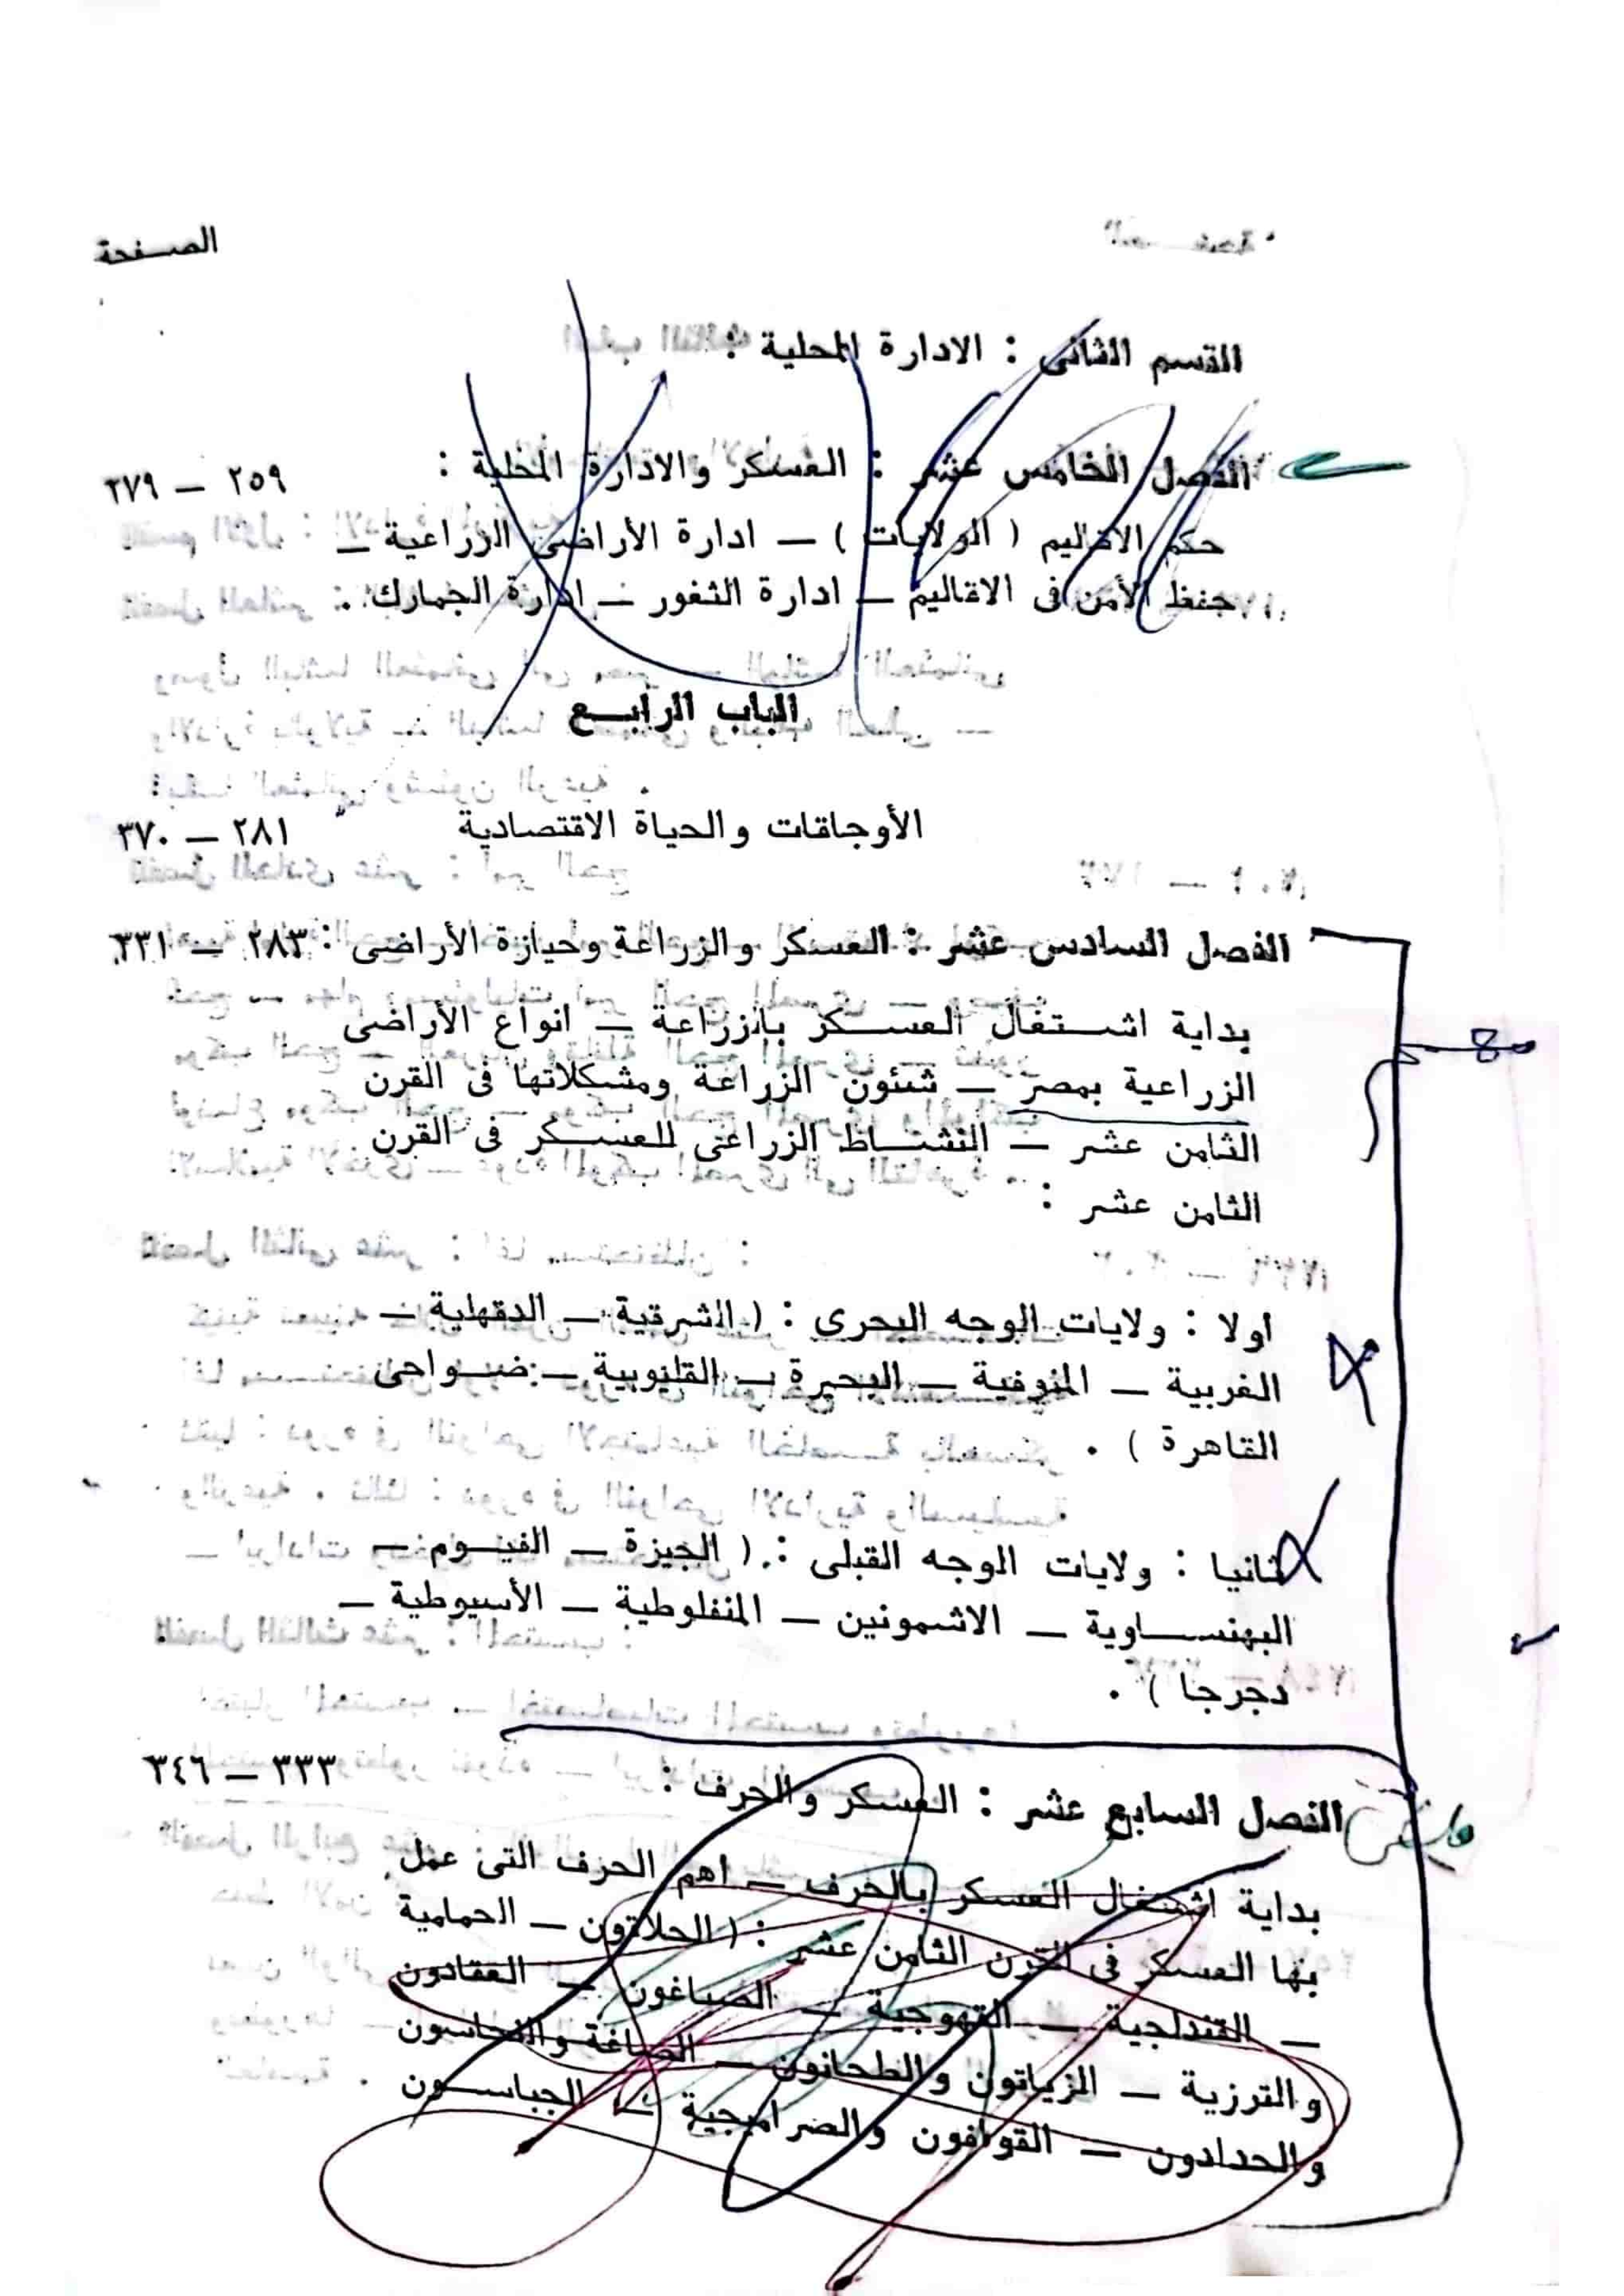 الصفحة
القسم الثانى : الادارة المحلية :
الفصل الخامس عشر : العسكر والادارة المحلية : ٢٥٩ — ٢٧٩
حكم الاقاليم ( الولايات ) — ادارة الأراضى الزراعية —
حفظ الأمن فى الاقاليم — ادارة الثغور — ادارة الجمارك .
الباب الرابع
الأوجاقات والحياة الاقتصادية ٢٨١ — ٣٧٠
الفصل السادس عشر : العسكر والزراعة وحيازة الأراضى : ٢٨٣ — ٣٣١
بداية اشتغال العسكر بالزراعة — انواع الأراضى
الزراعية بمصر — شئون الزراعة ومشكلاتها فى القرن
الثامن عشر — النشاط الزراعى للعسكر فى القرن
الثامن عشر :
اولا : ولايات الوجه البحرى : ( الشرقية — الدقهلية —
الغربية — المنوفية — البحيرة — القليوبية — ضواحى
القاهرة ) .
ثانيا : ولايات الوجه القبلى : ( الجيزة — الفيوم —
البهنساوية — الاشمونين — المنفلوطية — الأسيوطية —
دجرجا ) .
الفصل السابع عشر : العسكر والحرف : ٣٣٣ — ٣٤٦
بداية اشتغال العسكر بالحرف — اهم الحرف التى عمل
بها العسكر فى القرن الثامن عشر : ( الحلاقون — الحمامية
— القندلجية — القهوجية — الصباغون — العقادون
والترزية — الزياتون والطحانون — الصاغة والنحاسون
والحدادون — القوافون والصرامجية — الجباسون